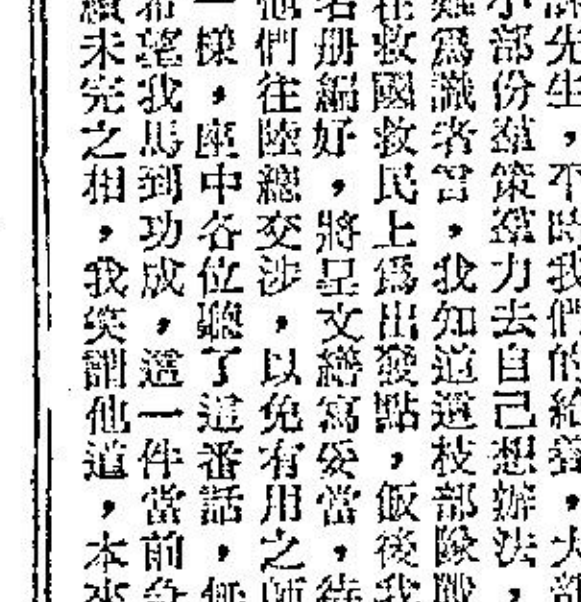 先生，不時我們的給養，大部
小部份羣策羣力去自己想辦法，
爲識者言，我知道這枝部隊戰
在救國救民上爲出發點，飯後我
名册編好，將呈文繕寫妥當，待
他們往陸總交涉，以免有用之師
一樣，座中各位聽了這番話，
希望我馬到功成，這一件當前
續未完之相，我笑謂他道，本來